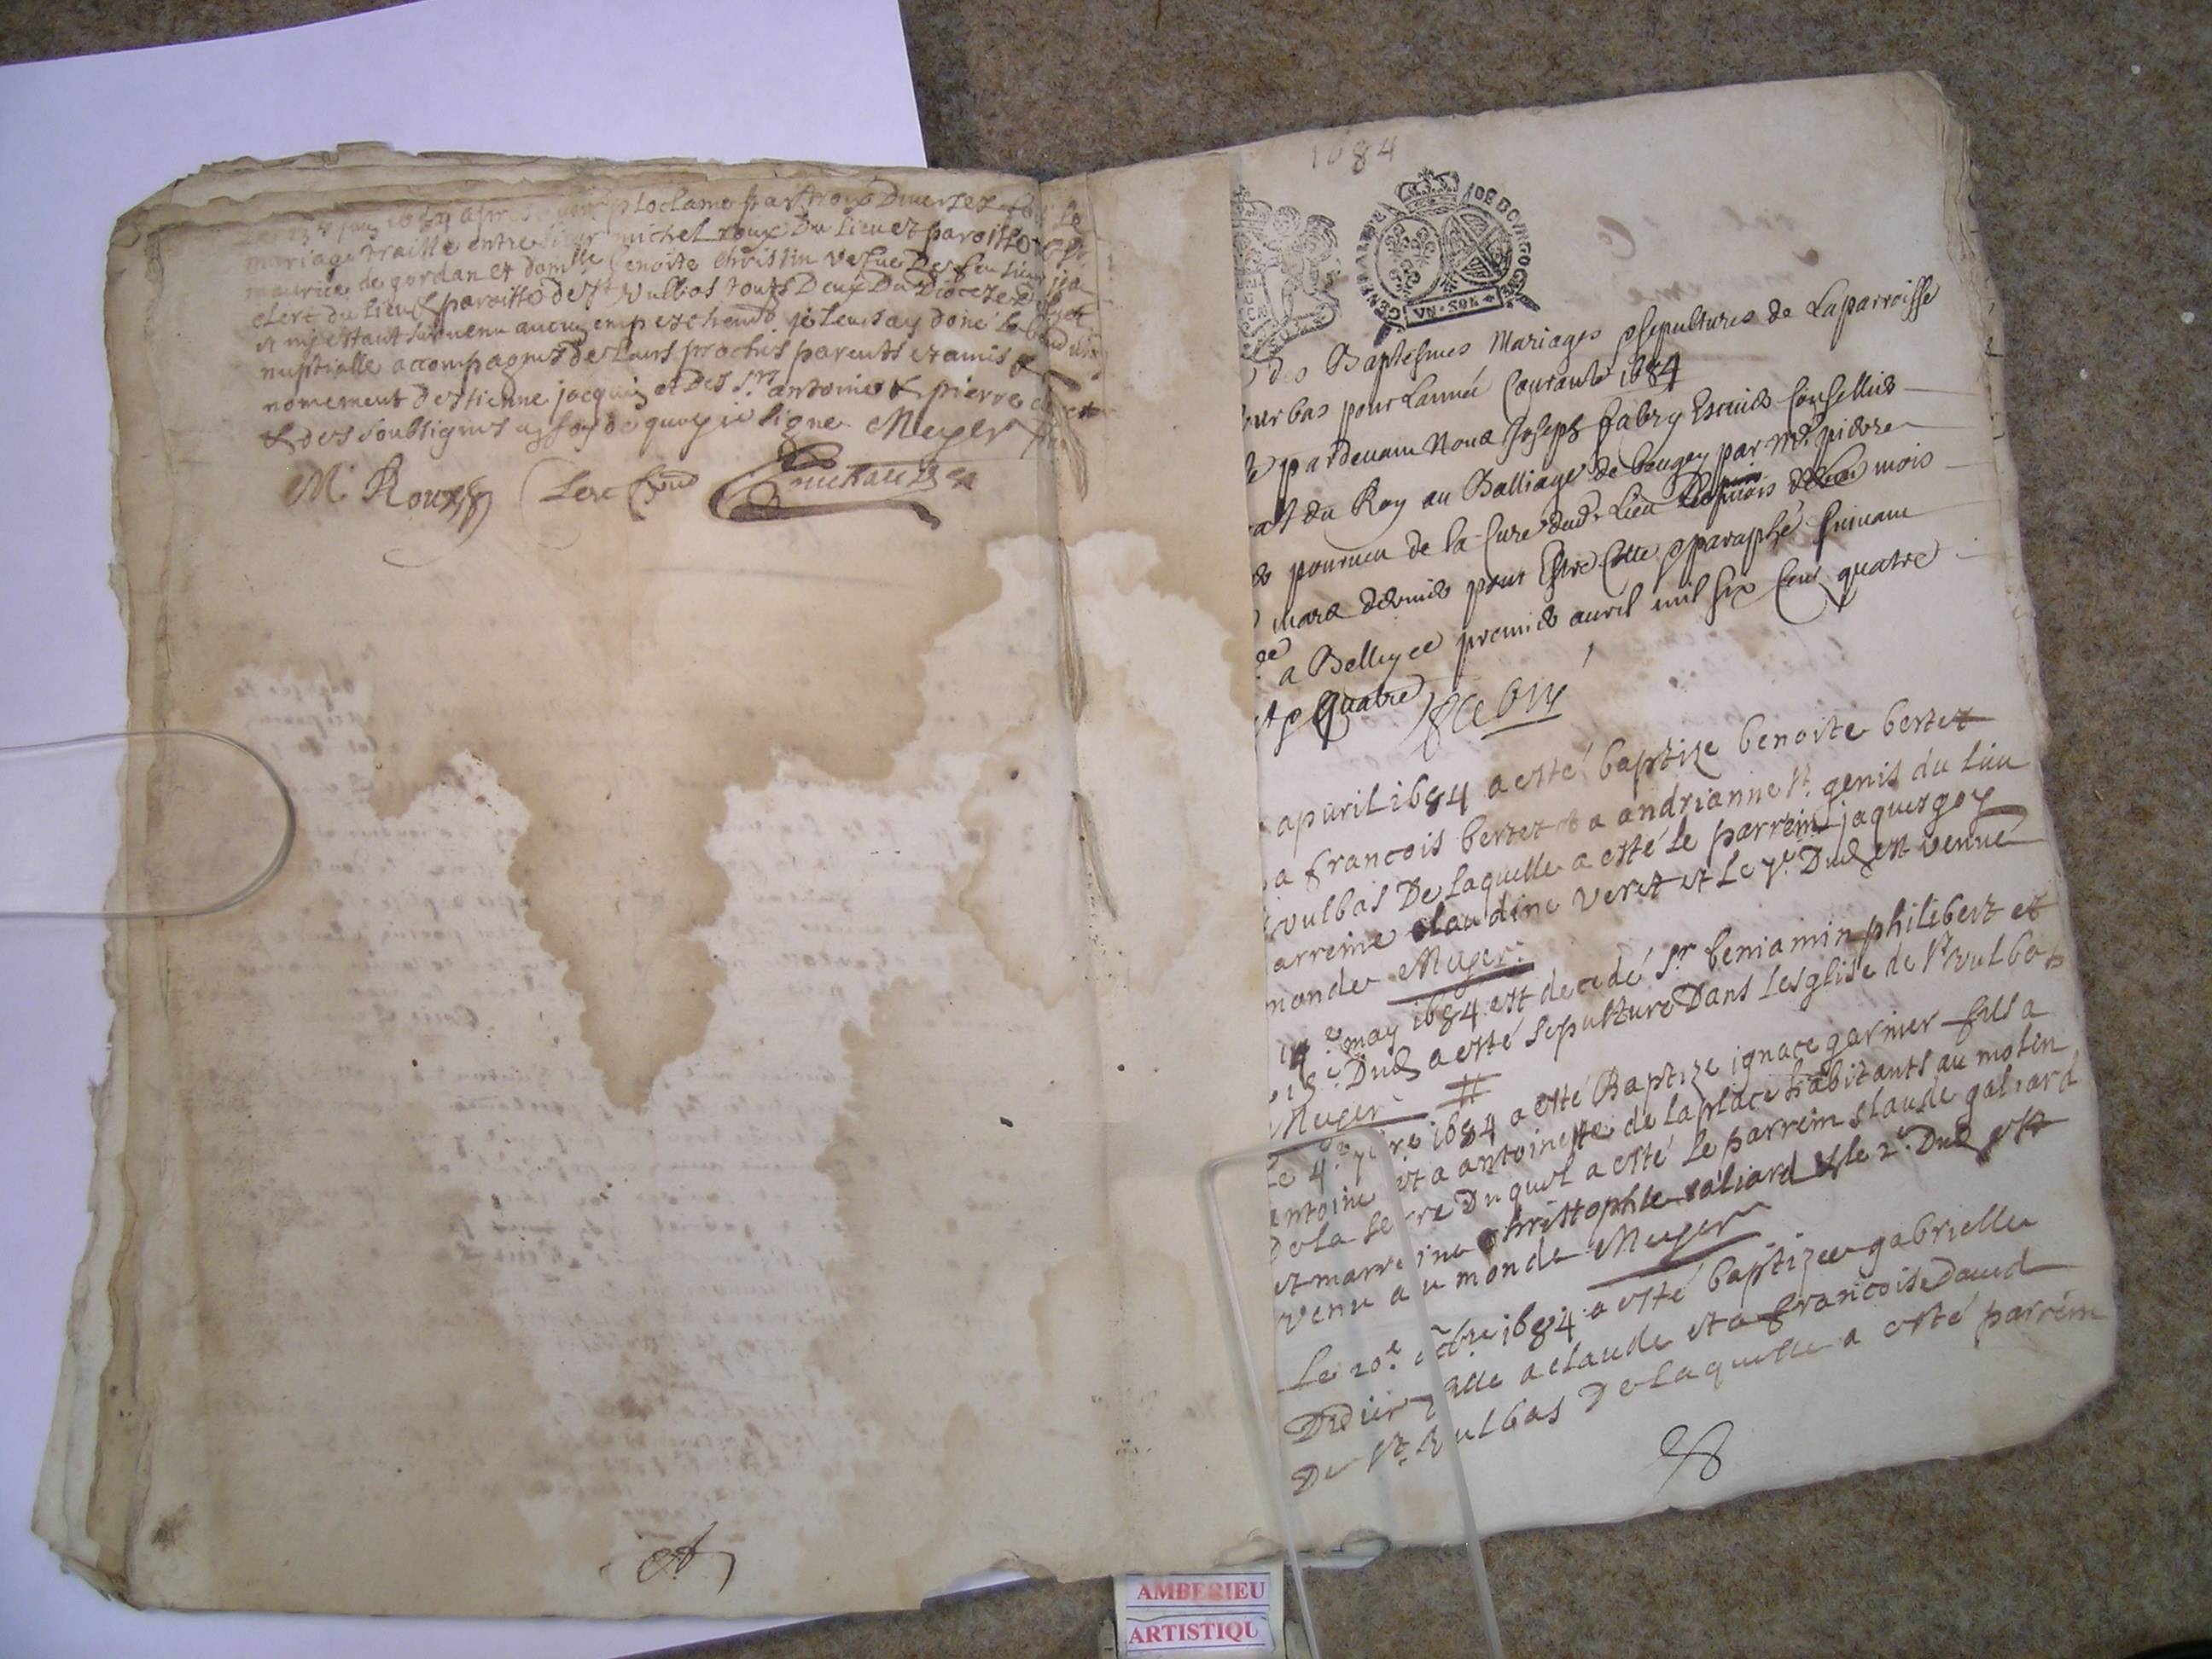 proclamé par trois Diverses
mariage traitté entre sieur michel roux Du Lieu et paroisse
maurice de gordan et damlle benoite christin vefue De feu sieur
clerc du Lieu & paroisse de st Vulbas touts Deux Du Diocese
et ny estant suruenu aucun empeschemt je leur ay doné la
nuptialle accompagnes de Leurs proches parents et amis &
nomement destienne jacquin et Des srs antoine & pierre
& des soubsignes en foy de quoy ie signe Meyer
M. Roux
1684
GENERALITE DE BOVRGOGNE
VN SOL
des Baptesmes Mariages & sepultures de Laparroisse
pour Lannée Courante 1684
pardeuant Nous Joseph fabry Escuier Conseillier
du Roy au Balliage de beugey par mre pierre
pourueu de la Cure dud. Lieu mois
mars dernier pour Estre Cotte & paraphé suiuant
a Belley ce premier auril mil six Cens quatre
& Quatre fabry
apuril 1684 a esté baptize benoite bertet
a francois bertet & a andrianne st. genis du lieu
vulbas De laquelle a esté le parrein jaques goy
arreine claudine veret et Le 7e. Dud est venue
monde Meyer
14e. may 1684 est decedé sr beniamin philibert et
15e. Dud a esté sepulturé Dans Lesglise de st vulbas
Meyer
Le 4e. 7bre 1684 a esté Baptize ignace garnier fils a
antoine et a antoinette de la place habitants au molin
De la serre Du quel a esté le parrein claude galiard
et marreine christophle galiard & le 2e. Dud est
venu au monde Meyer
Le 20e. octbre 1684 a esté baptizee gabrielle
Didier fille a claude et a francoise Dauid
De st. Vulbas De laquelle a esté parrein
AMBERIEU
ARTISTIQU